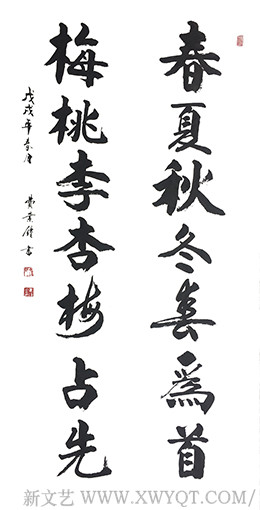 春夏秋冬春為首
梅桃李杏梅占先
戊戌年春月
費業傳書
新文艺 WWW.XWYQT.COM/